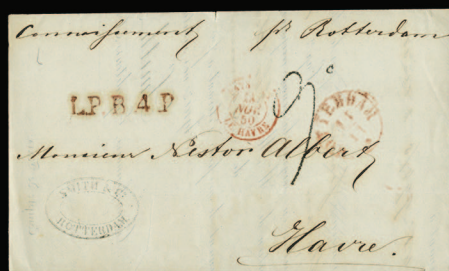 Connaissement pr Rotterdam
L.P.B.4.R
NOV
50
LE HAVRE
ROTTERDAM
Monsieur Nestor Albert
SMITH & Co
ROTTERDAM
Havre.